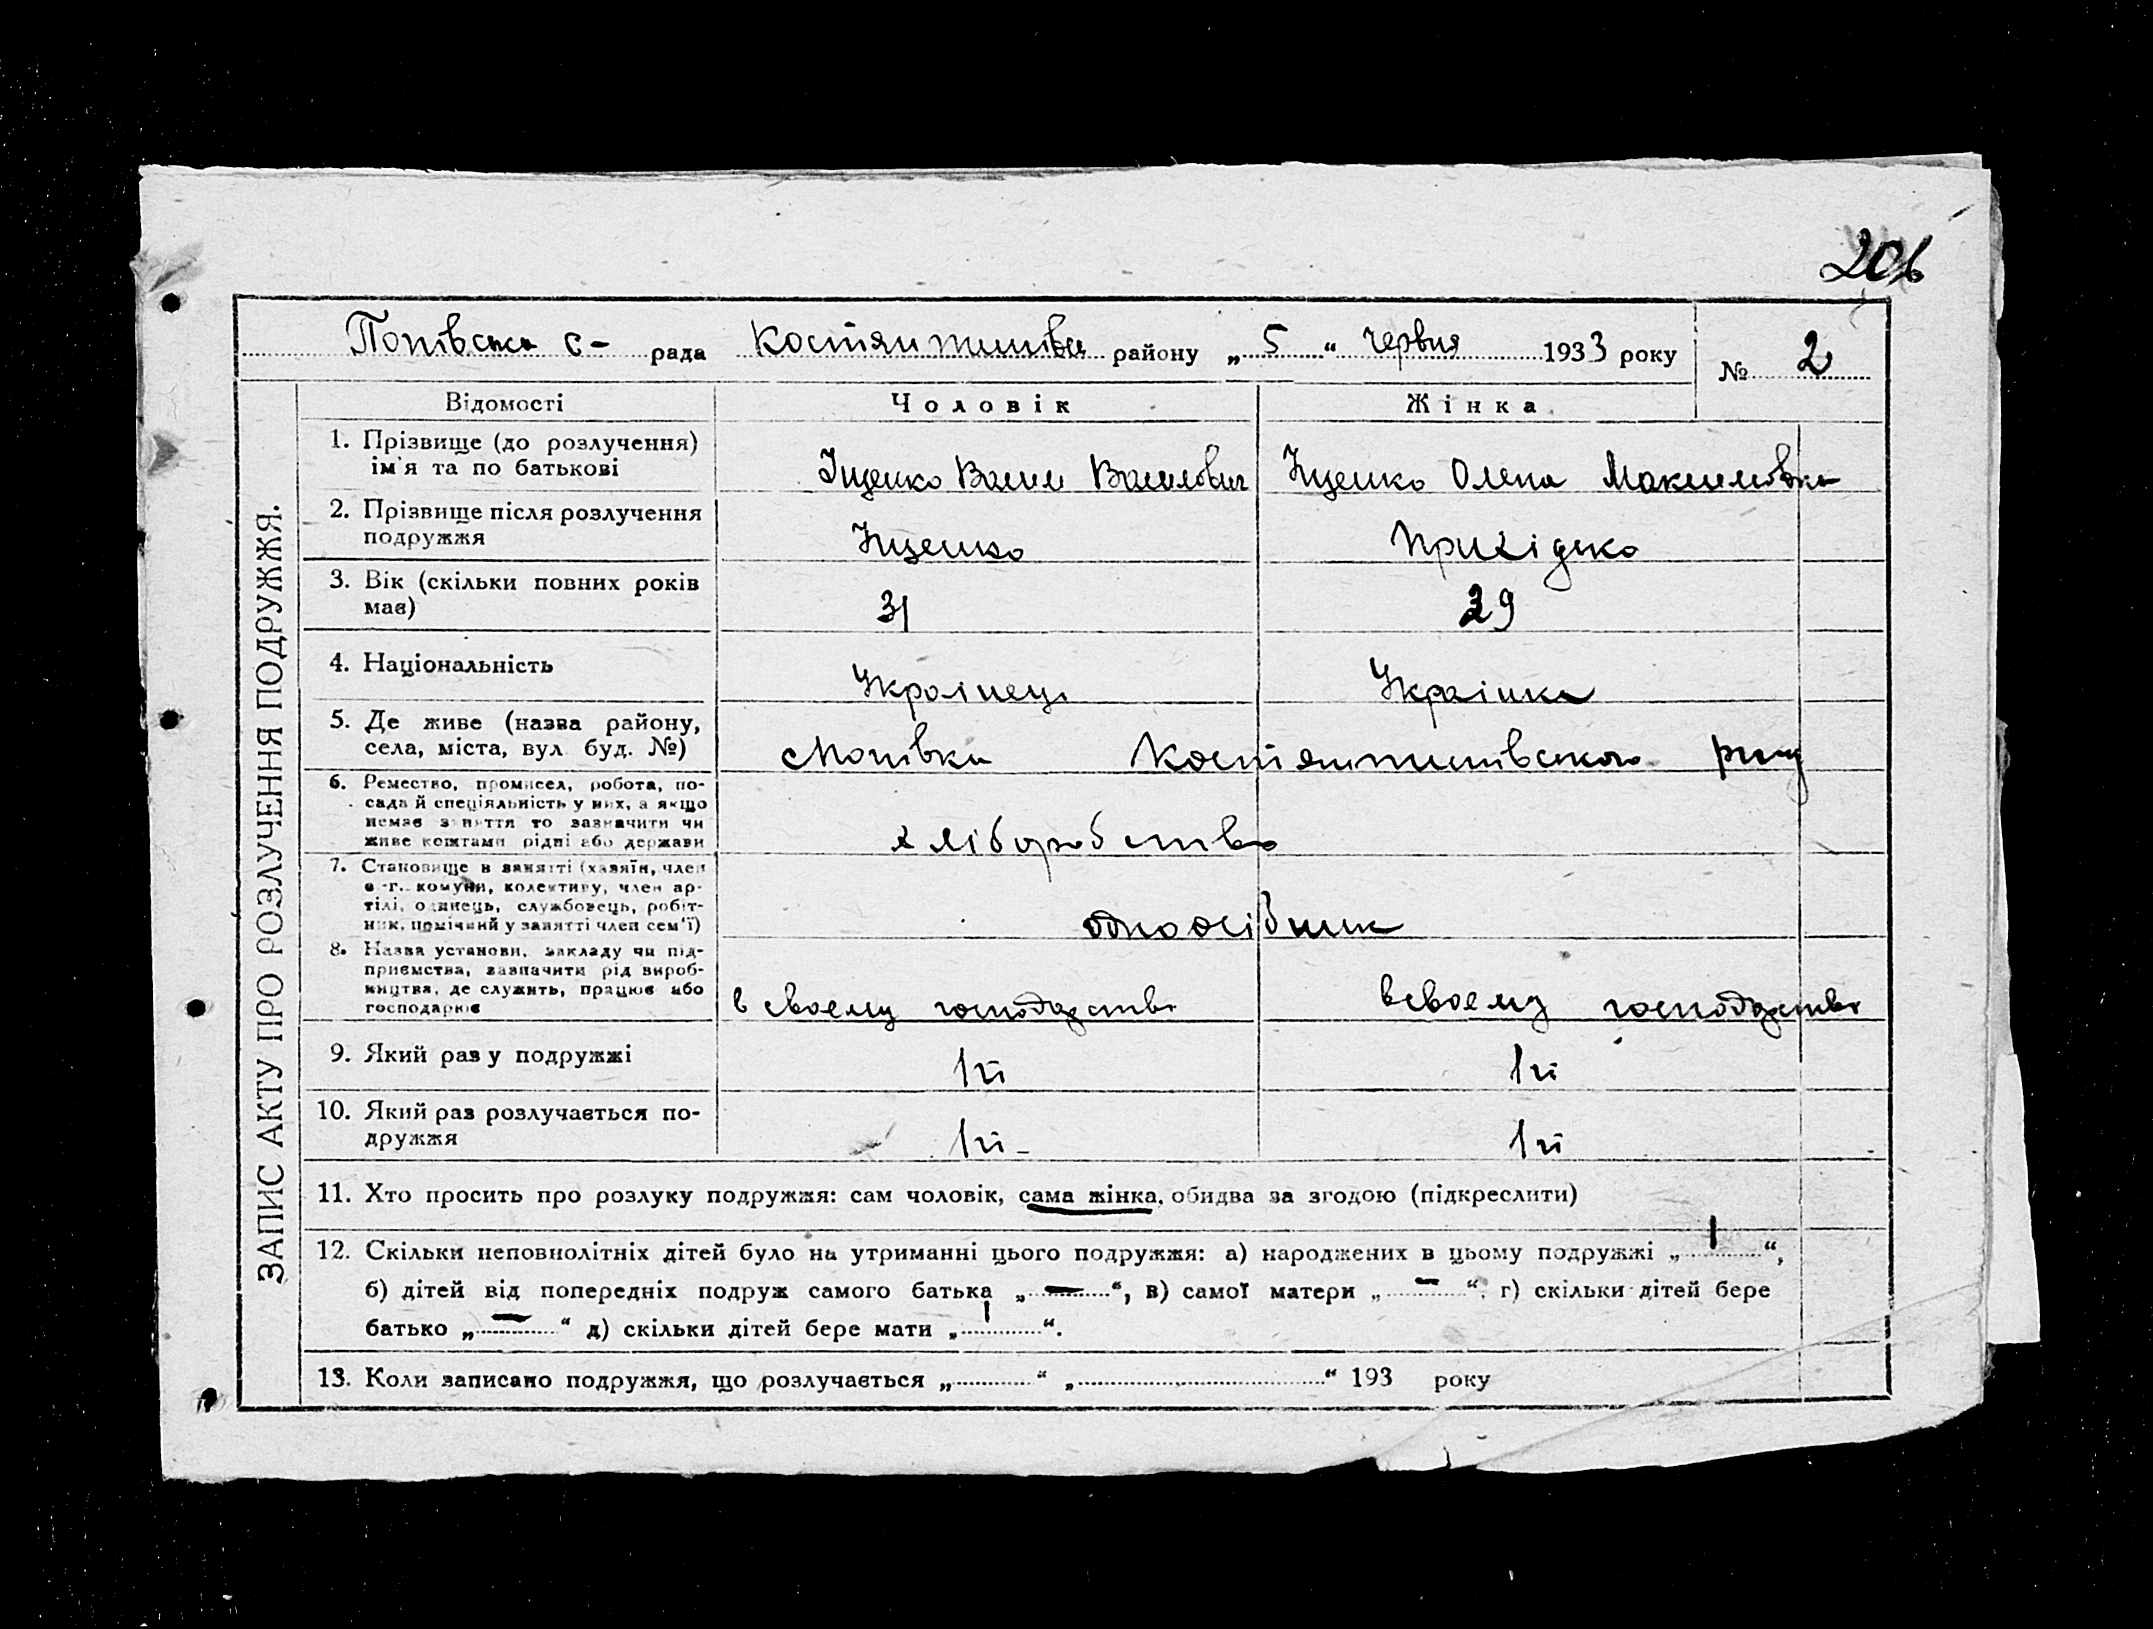 206
Попівська с- рада Костянтинівс району „5“ червня 1933 року № 2
ЗАПИС АКТУ ПРО РОЗЛУЧЕННЯ ПОДРУЖЖЯ.
Відомості Чоловік Жінка
1. Прізвище (до розлучення)
ім'я та по батькові
Іщенко Васил Василович Іщенко Олена Максимовна
2. Прізвище після розлучення
подружжя
Іщенко Прихідько
3. Вік (скільки повних років
має)
31 29
4. Національність
Українець Українка
5. Де живе (назва району,
села, міста, вул. буд. №)
Костянтинівського
6. Ремество, промисел, робота, по-
сада й спеціяльність у них, а якщо
немає заняття то зазначити чи
живе коштами рідні або держави
хліборобство
7. Становище в занятті (хазяїн, член
с.-г. комуни, колективу, член ар-
тілі, одинець, службовець, робіт-
ник, помічний у занятті член сем'ї)
одноосібник
8. Назва установи, закладу чи під-
приємства, зазначити рід вироб-
ництва, де служить, працює або
господарює
в своему господарстві в своему господарстві
9. Який раз у подружжі
1й 1й
10. Який раз розлучається по-
дружжя
1й - 1й
11. Хто просить про розлуку подружжя: сам чоловік, сама жінка, обидва за згодою (підкреслити)
12. Скільки неповнолітніх дітей було на утриманні цього подружжя: а) народжених в цьому подружжі „1“,
б) дітей від попередніх подруж самого батька „—“, в) самої матери „—“, г) скільки дітей бере
батько „—“ д) скільки дітей бере мати „1“.
13. Коли записано подружжя, що розлучається „ “ „ “ 193 року